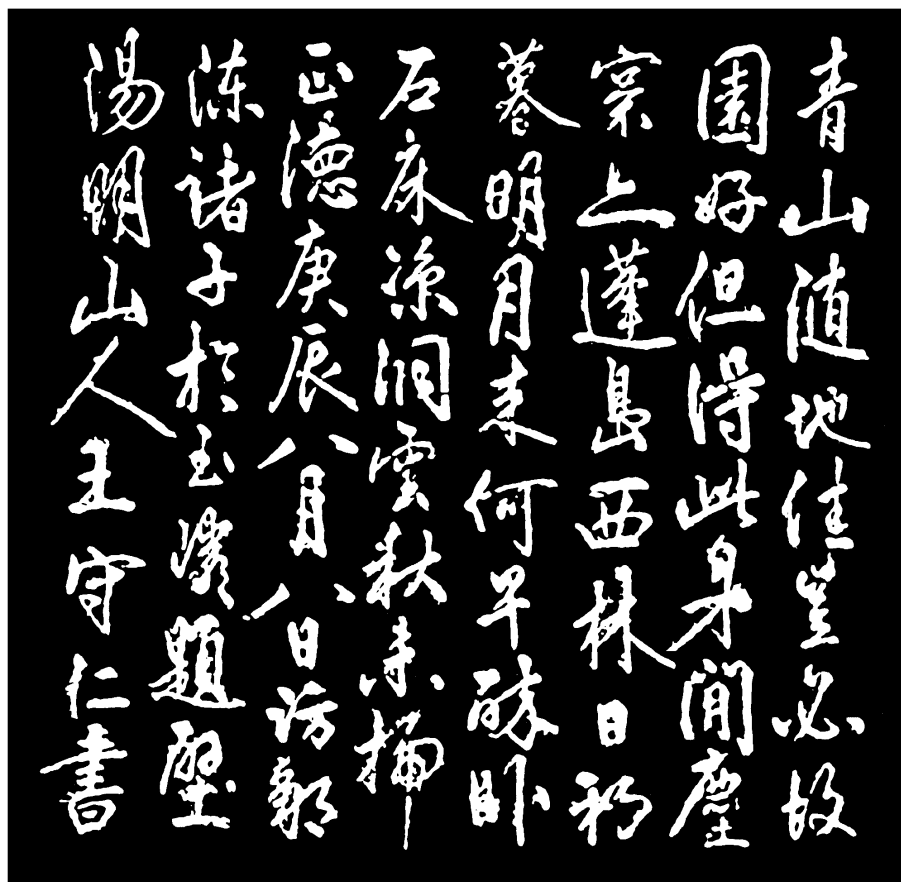 青山随地佳豈必故
園好但得此身閒塵
寰上蓬島西林日初
暮明月来何早醉卧
石床涼洞雲秋未掃
正德庚辰八月八日訪鄒
陳諸子於玉巖題壁
陽明山人王守仁書